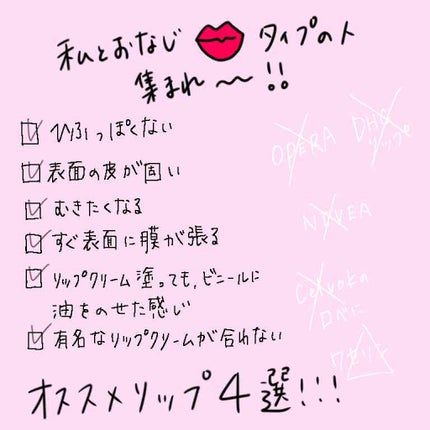 私とおなじ タイプの人
集まれ〜!!
ひふっぽくない
表面の皮が固い
むきたくなる
すぐ表面に膜が張る
リップクリーム塗っても,ビニールに
油をのせた感じ
有名なリップクリームが合わない
オススメリップ4選!!!
OPERA
DHC
リップ
NIVEA
ワセリン